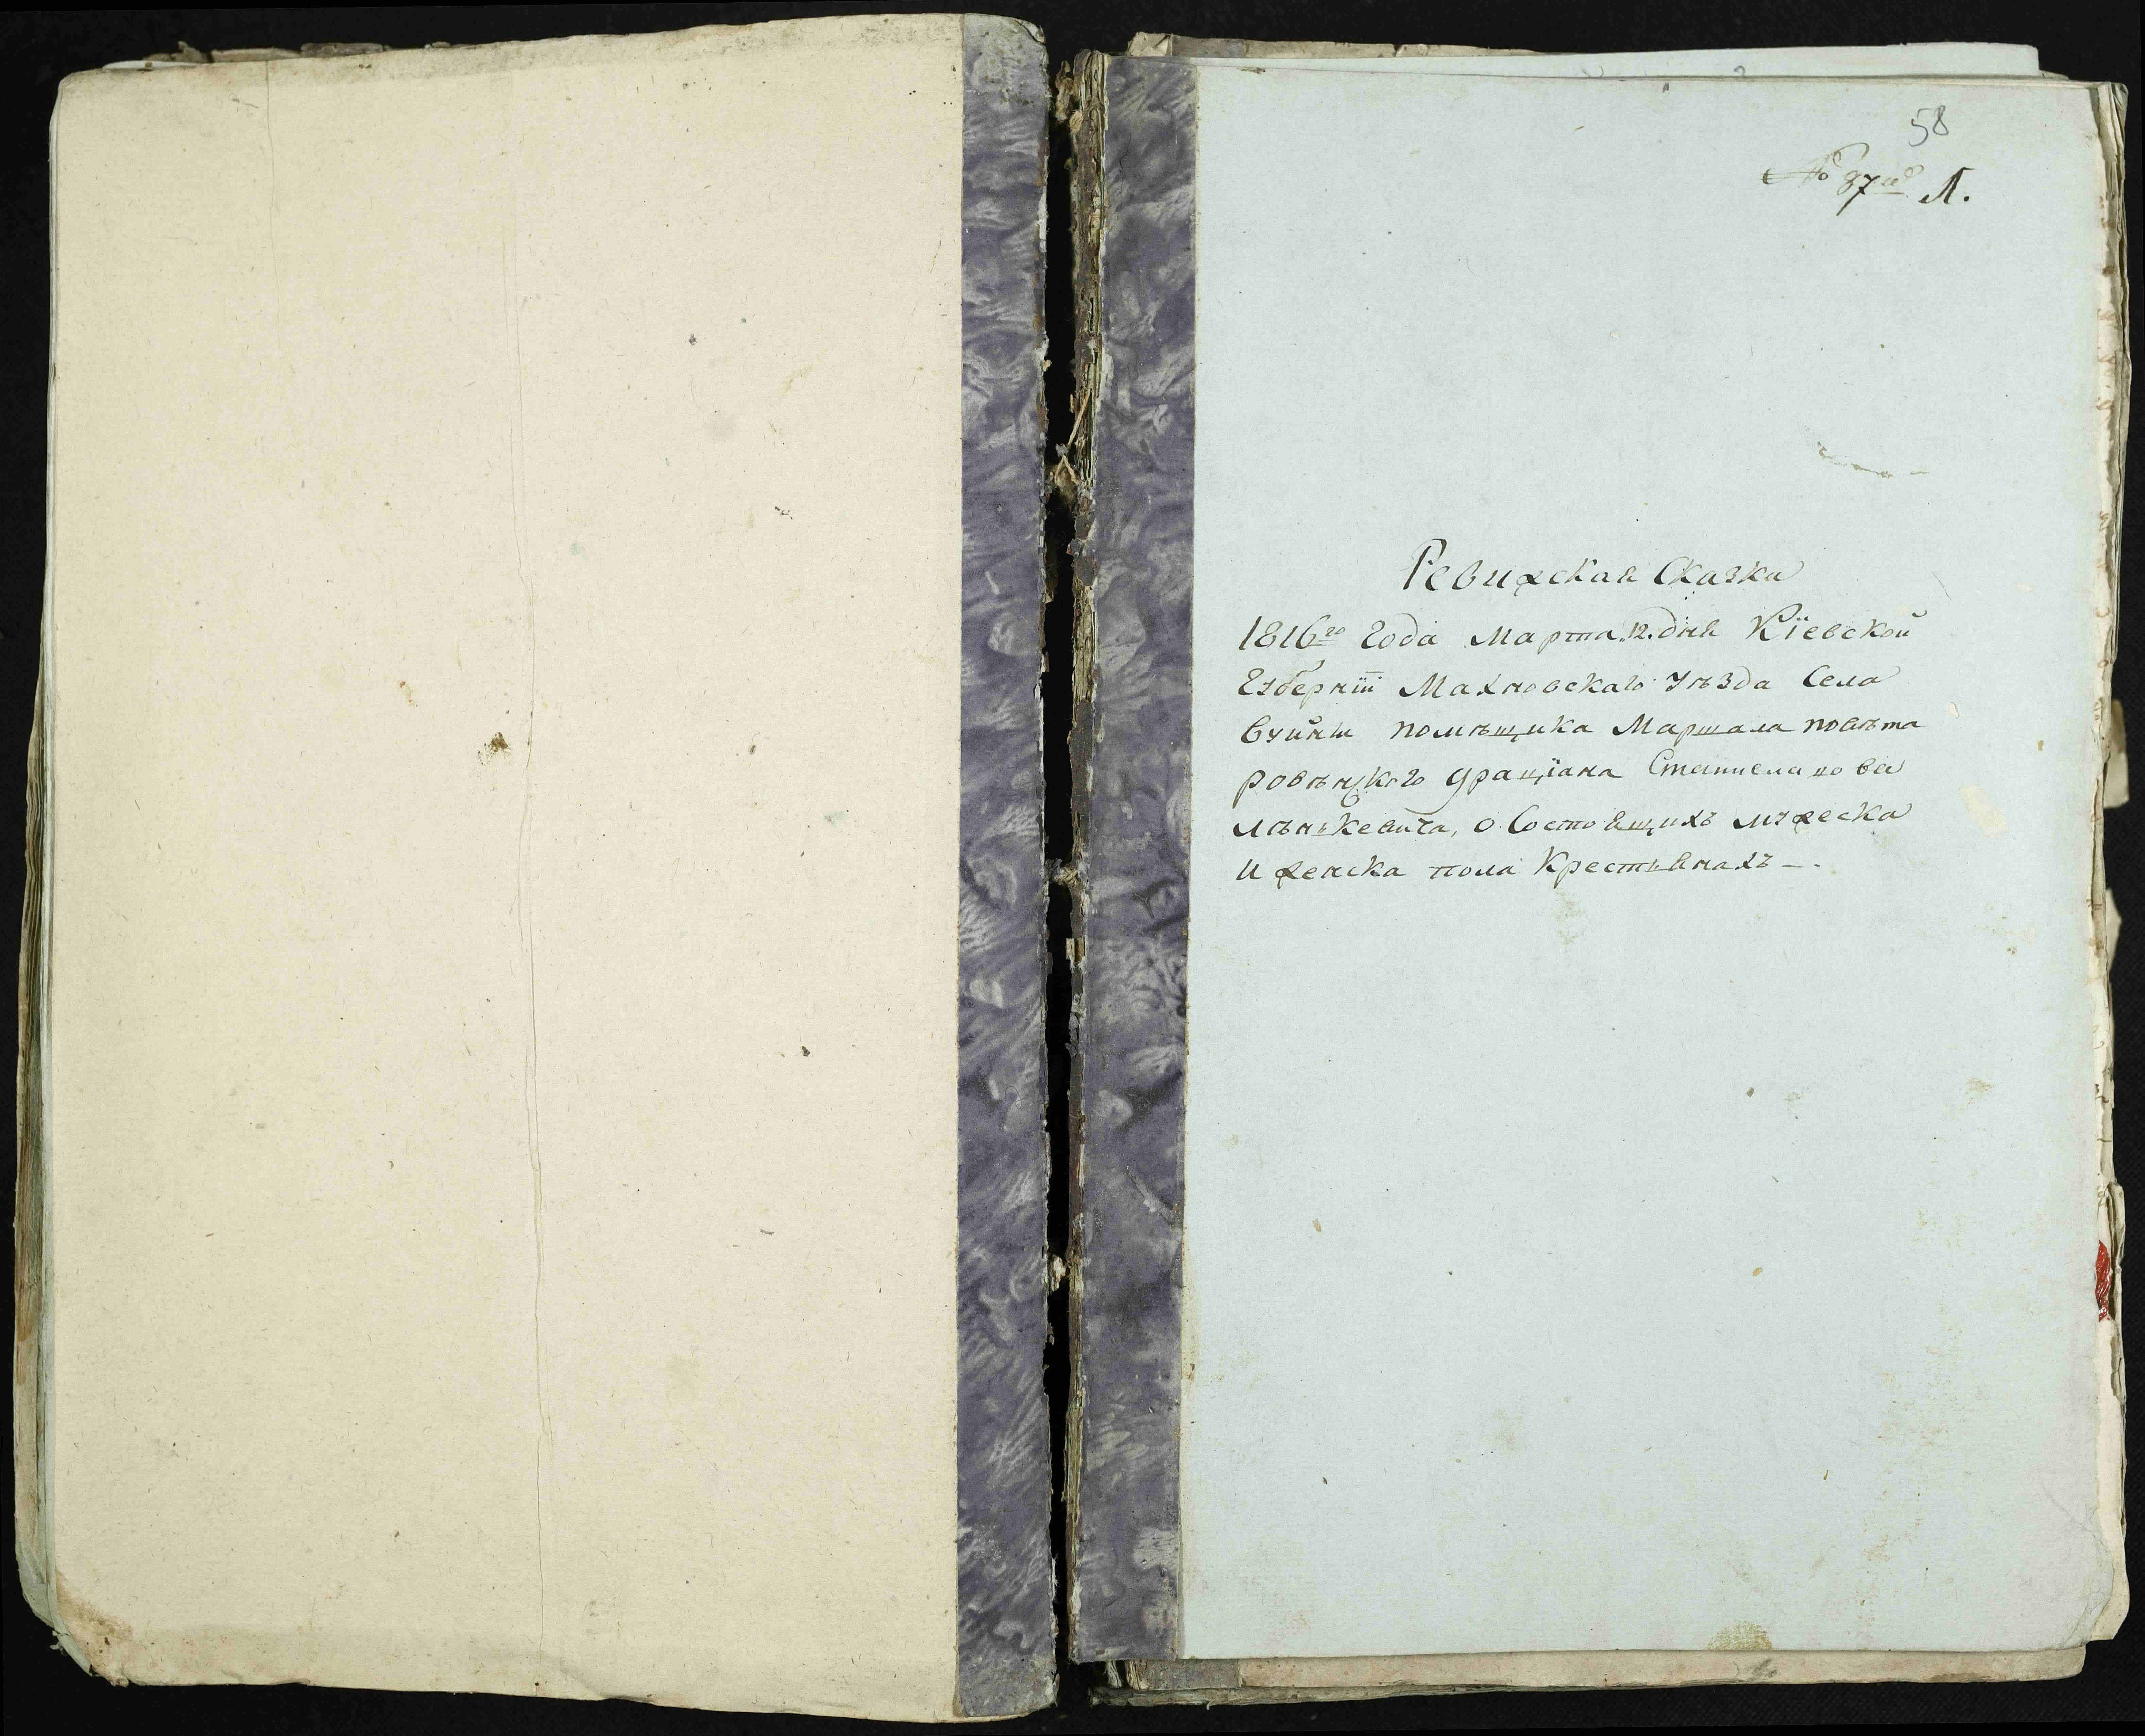 58
№ 37й Л.
Ревижская Сказка
1816го года Марта 12. дня Кїевской
Губернїи Махновскаго уѣзда Села
вуйны помѣщика Маршала повѣта
ровѣнского Грацїана Станиславова
лѣнькевича, о Состоящихъ мужеска
и женска пола Крестьянахъ —.